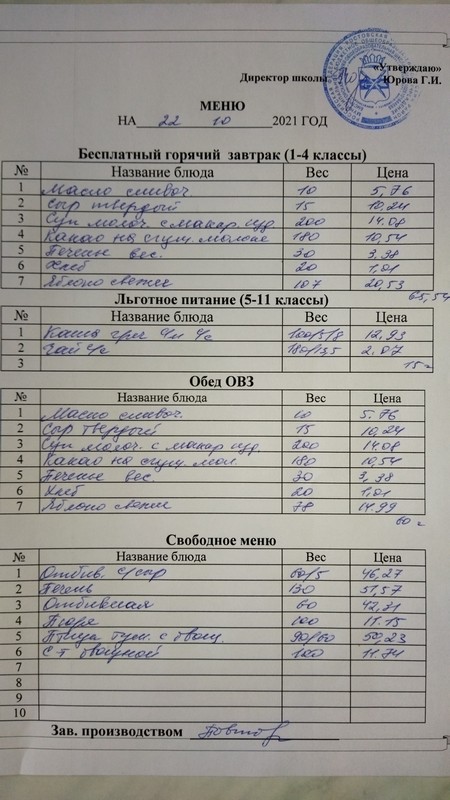 «Утверждаю»
Директор школы Юрова Г.И.
МЕНЮ
НА 22 10 2021 ГОД
Бесплатный горячий завтрак (1-4 классы)
№ Название блюда Вес Цена
1 Масло сливоч 10 5,76
2 Сыр твердый 15 10,24
3 Суп молоч. с макар. изд. 200 14.08
4 Какао на сгущ. молоке 180 10,54
5 Печень вес. 30 3.38
6 Хлеб 20 1,01
7 Яблоко свежее 107 20,53
65,54
Льготное питание (5-11 классы)
№ Название блюда Вес Цена
1 Каша греч 100/5/8 12,93
2 Чай с/с 180/13,5 2.07
3 15
Обед ОВЗ
№ Название блюда Вес Цена
1 Масло сливоч. 10 5.76
2 Сыр твердый 15 10,24
3 Суп молоч. с макар изд. 200 14.08
4 Какао на сгущ. мол. 180 10,54
5 Печень вес. 30 3,38
6 Хлеб 20 1,01
7 Яблоко свежее 78 14.99
60
Свободное меню
№ Название блюда Вес Цена
1 Отбив. с/сыр 60/5 46,27
2 Печень 130 51,57
3 Отбивная 60 42,31
4 Пюре 100 11.15
5 Птица туш. с овощ. 90/60 50,23
6 100 11.74
7
8
9
10
Зав. производством